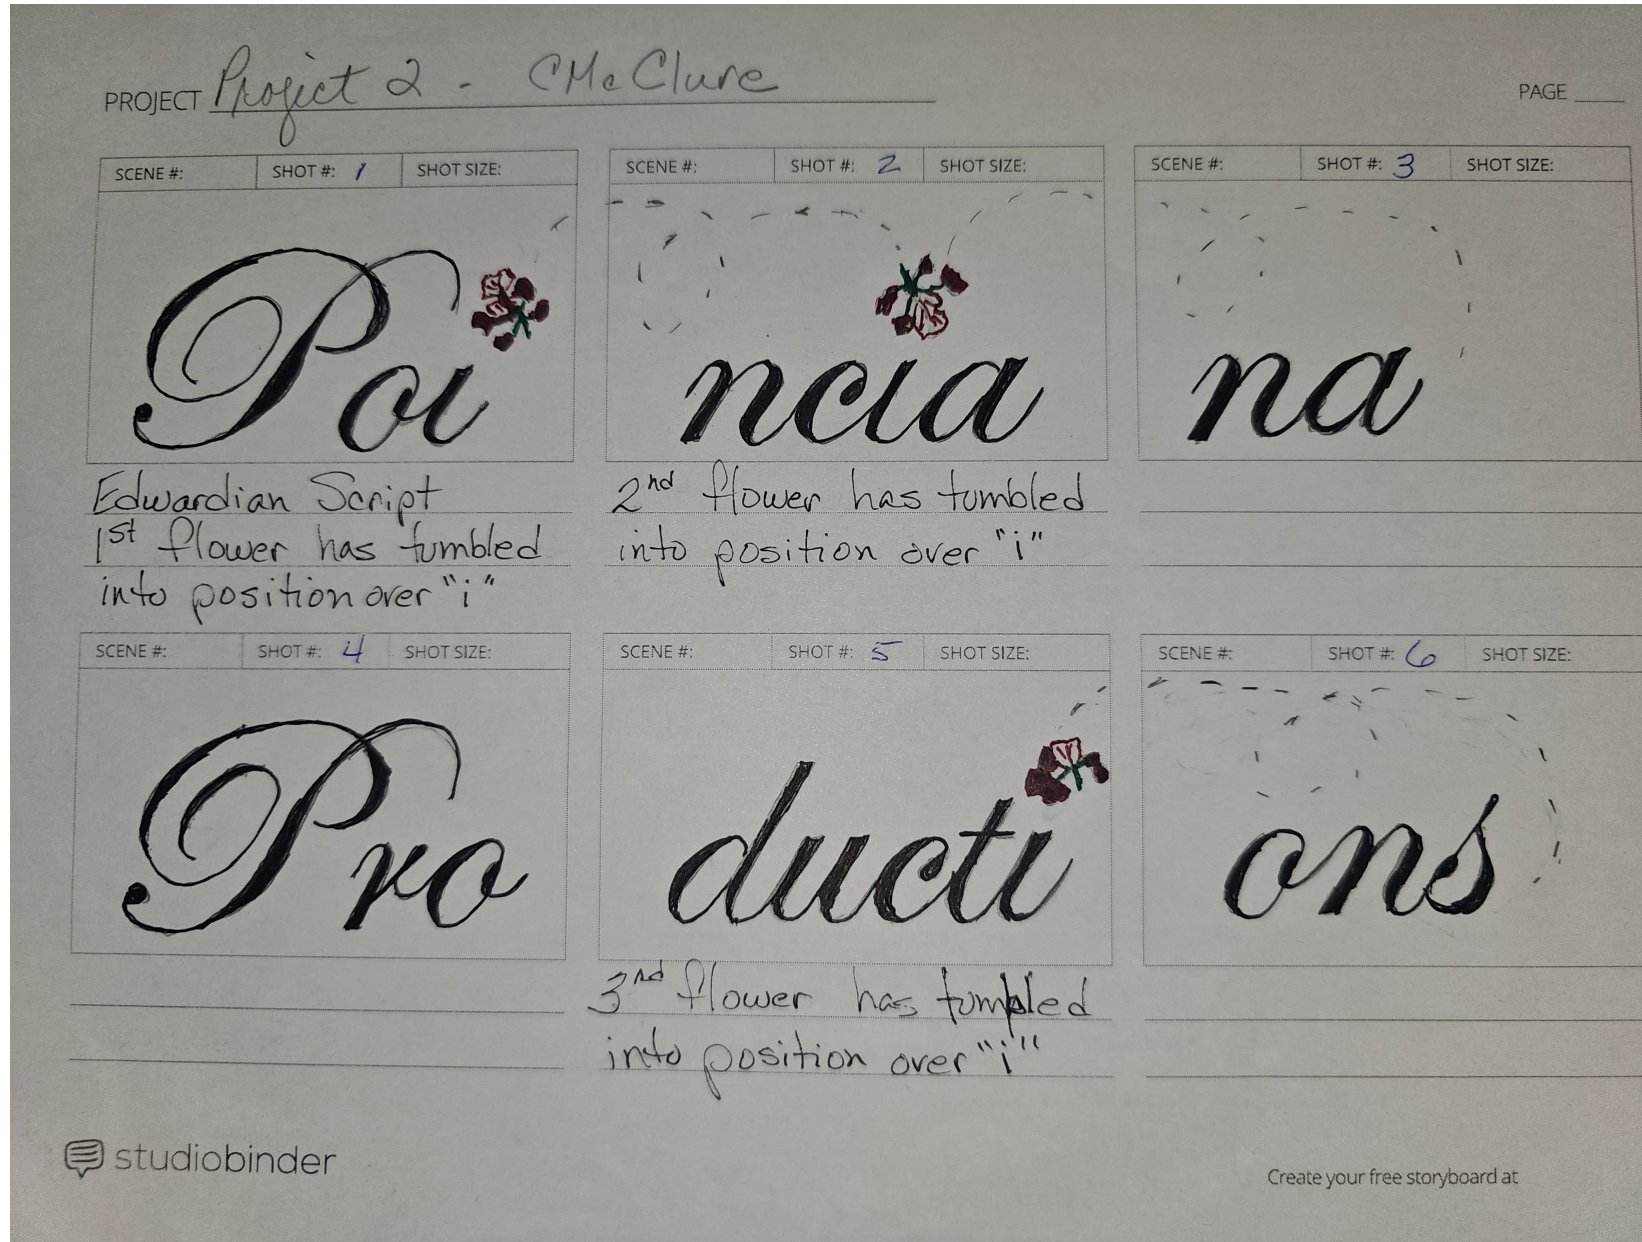 PROJECT Project 2 - CMcClure
PAGE
SCENE #: SHOT #: 1 SHOT SIZE:
Poi
Edwardian Script
1st flower has tumbled
into position over "i"
SCENE #: SHOT #: 2 SHOT SIZE:
ncia
2nd flower has tumbled
into position over "i"
SCENE #: SHOT #: 3 SHOT SIZE:
na
SCENE #: SHOT #: 4 SHOT SIZE:
Pro
SCENE #: SHOT #: 5 SHOT SIZE:
ducti
3nd flower has tumbled
into position over "i"
SCENE #: SHOT #: 6 SHOT SIZE:
ons
studiobinder
Create your free storyboard at